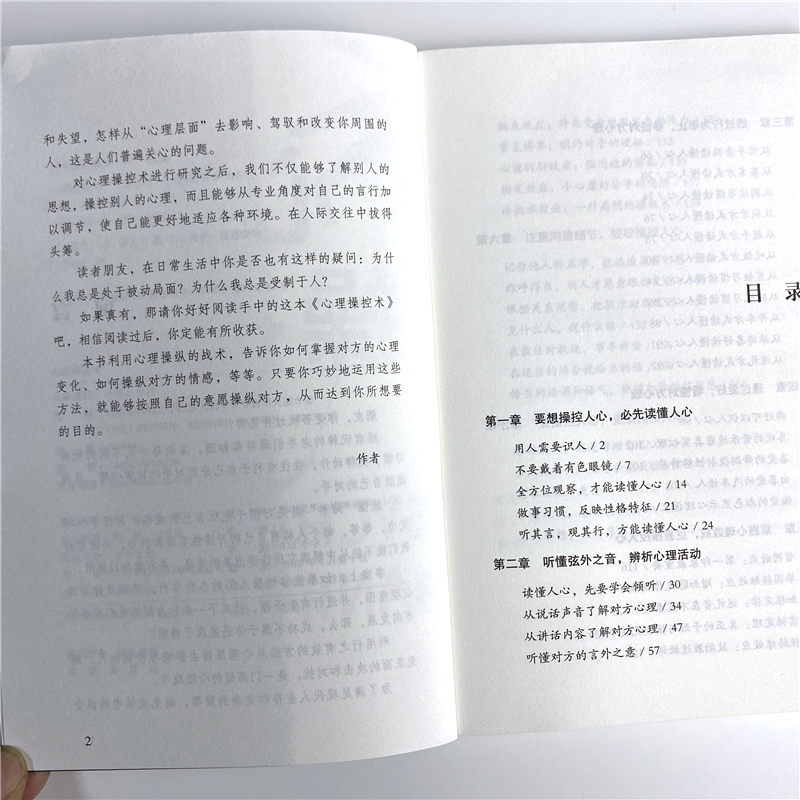 和失望，怎样从“心理层面”去影响、驾驭和改变你周围的
人，这是人们普遍关心的问题。
对心理操控术进行研究之后，我们不仅能够了解别人的
思想，操控别人的心理，而且能够从专业角度对自己的言行加
以调节，使自己能更好地适应各种环境。在人际交往中拔得
头筹。
读者朋友，在日常生活中你是否也有这样的疑问：为什
么我总是处于被动局面？为什么我总是受制于人？
如果真有，那请你好好阅读手中的这本《心理操控术》
吧，相信阅读过后，你定能有所收获。
本书利用心理操纵的战术，告诉你如何掌握对方的心理
变化、如何操纵对方的情感，等等。只要你巧妙地运用这些
方法，就能够按照自己的意愿操纵对方，从而达到你所想要
的目的。
作者
2
目录
第一章 要想操控人心，必先读懂人心
用人需要识人 / 2
不要戴着有色眼镜 / 7
全方位观察，才能读懂人心 / 14
做事习惯，反映性格特征 / 21
听其言，观其行，方能读懂人心 / 24
第二章 听懂弦外之音，辨析心理活动
读懂人心，先要学会倾听 / 30
从说话声音了解对方心理 / 34
从讲话内容了解对方心理 / 47
听懂对方的言外之意 / 57